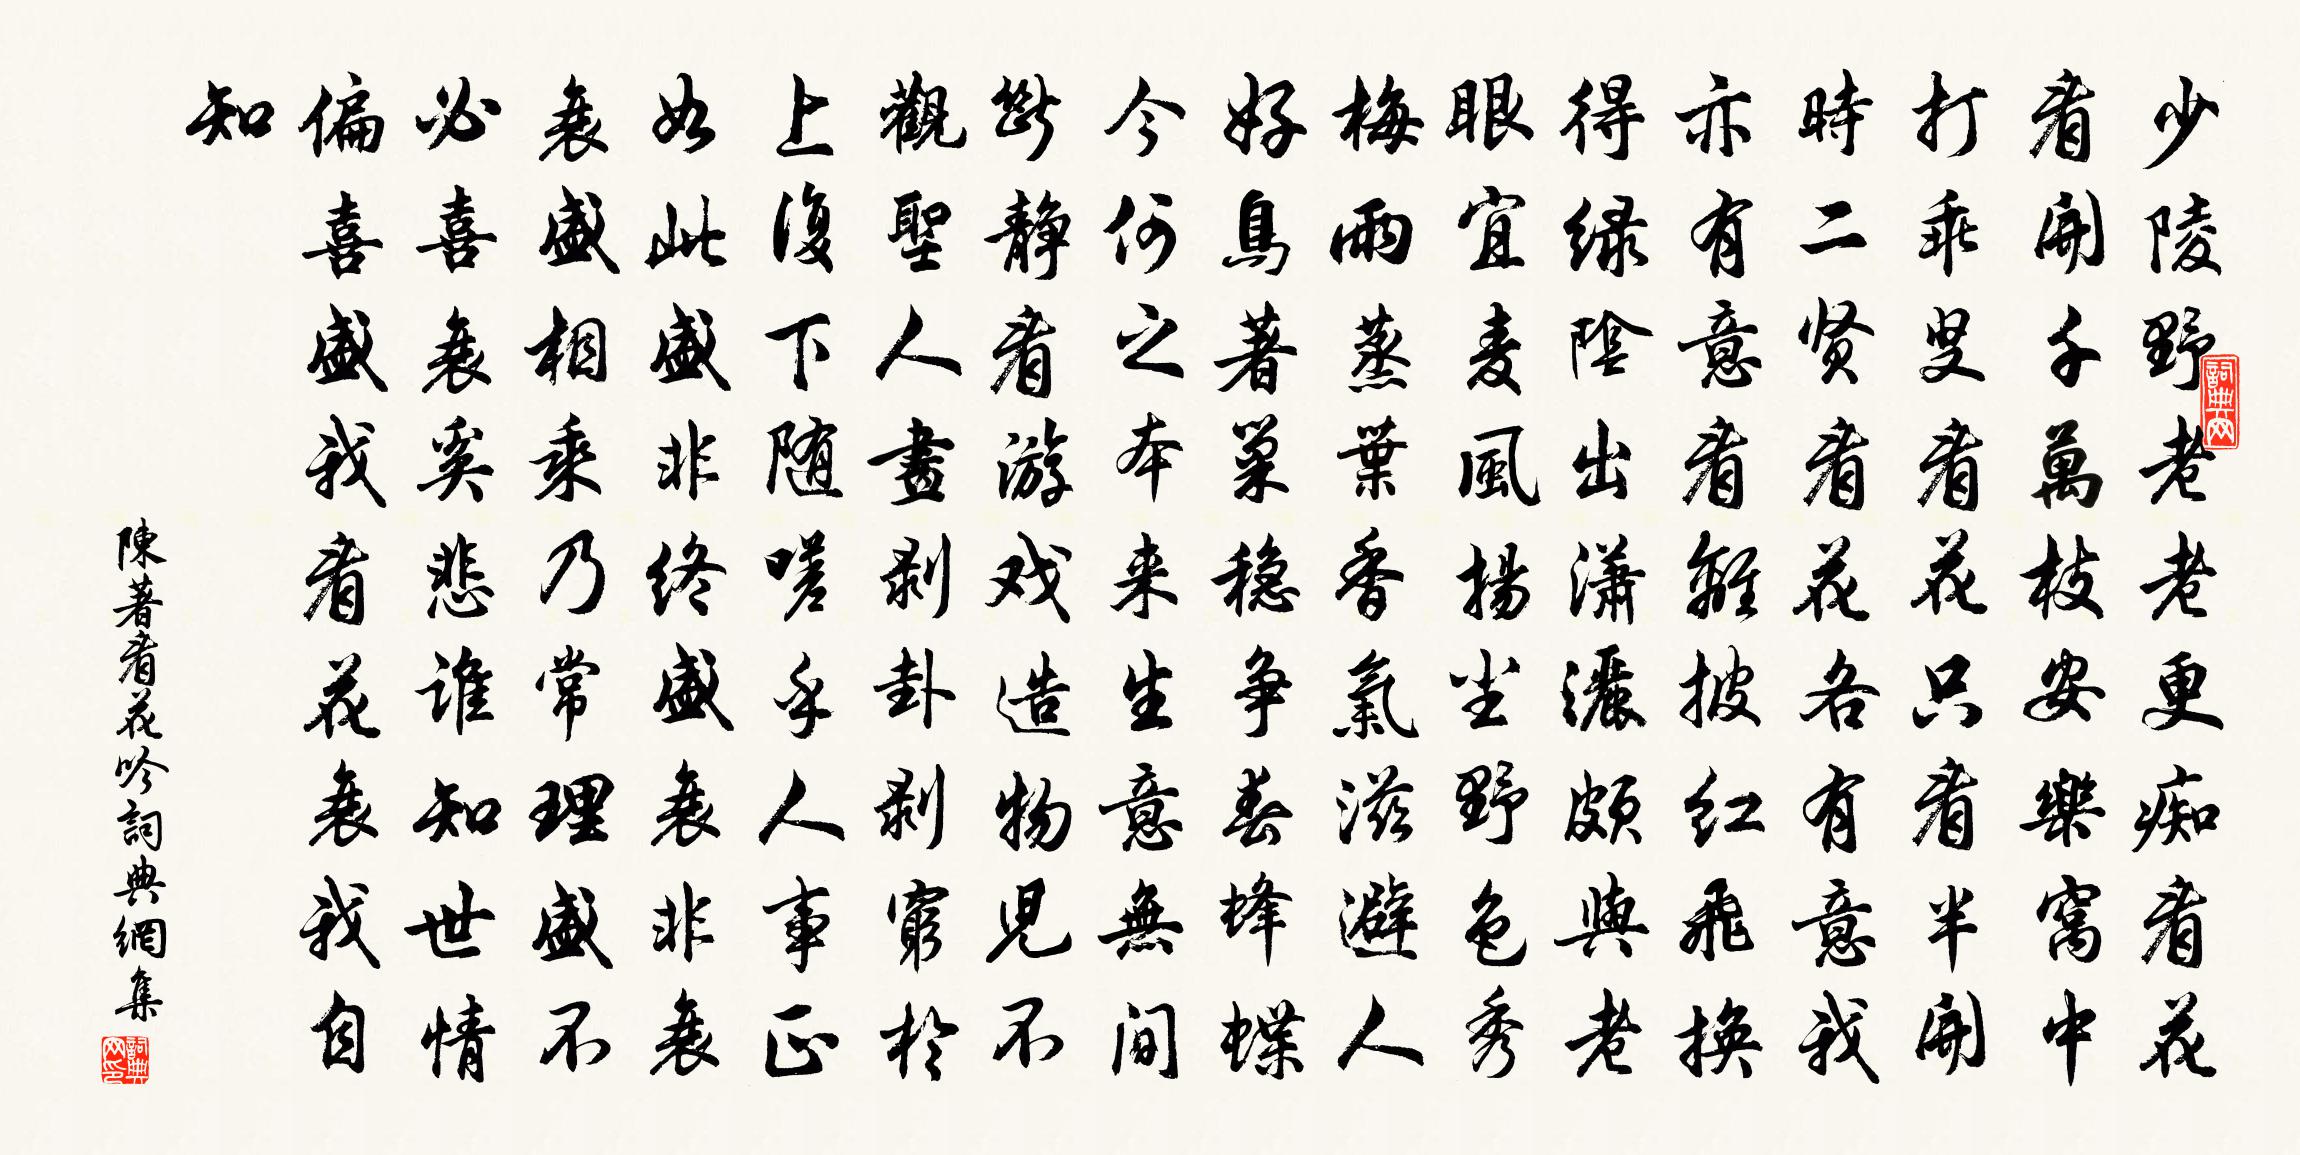 少陵野老老更痴看花
看開千萬枝安樂窩中
打乖叟看花只看半開
時二贤看花各有意我
亦有意看離披紅飛換
得绿陰出潇灑頗與老
眼宜麦風揚尘野色秀
梅雨蒸葉香氣滋避人
好鳥著巢稳争春蜂蝶
今何之本来生意無间
断静看游戏造物児不
觀聖人畫剥卦剥窮於
上復下随嗟乎人事正
如此盛非终盛衰非衰
衰盛相乘乃常理盛不
必喜衰奚悲谁知世情
偏喜盛我看花衰我自
知
陳著看花吟詞典網集
詞典网
詞典网印